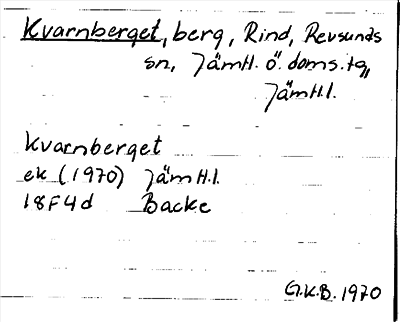 Kvarnberget, berg, Rind, Revsunds
sn, Jämtl. ö. doms.tg,
Jämtl.l.
Kvarnberget
ek (1970) Jämtl.l.
18F4d Backe
G.K.B. 1970